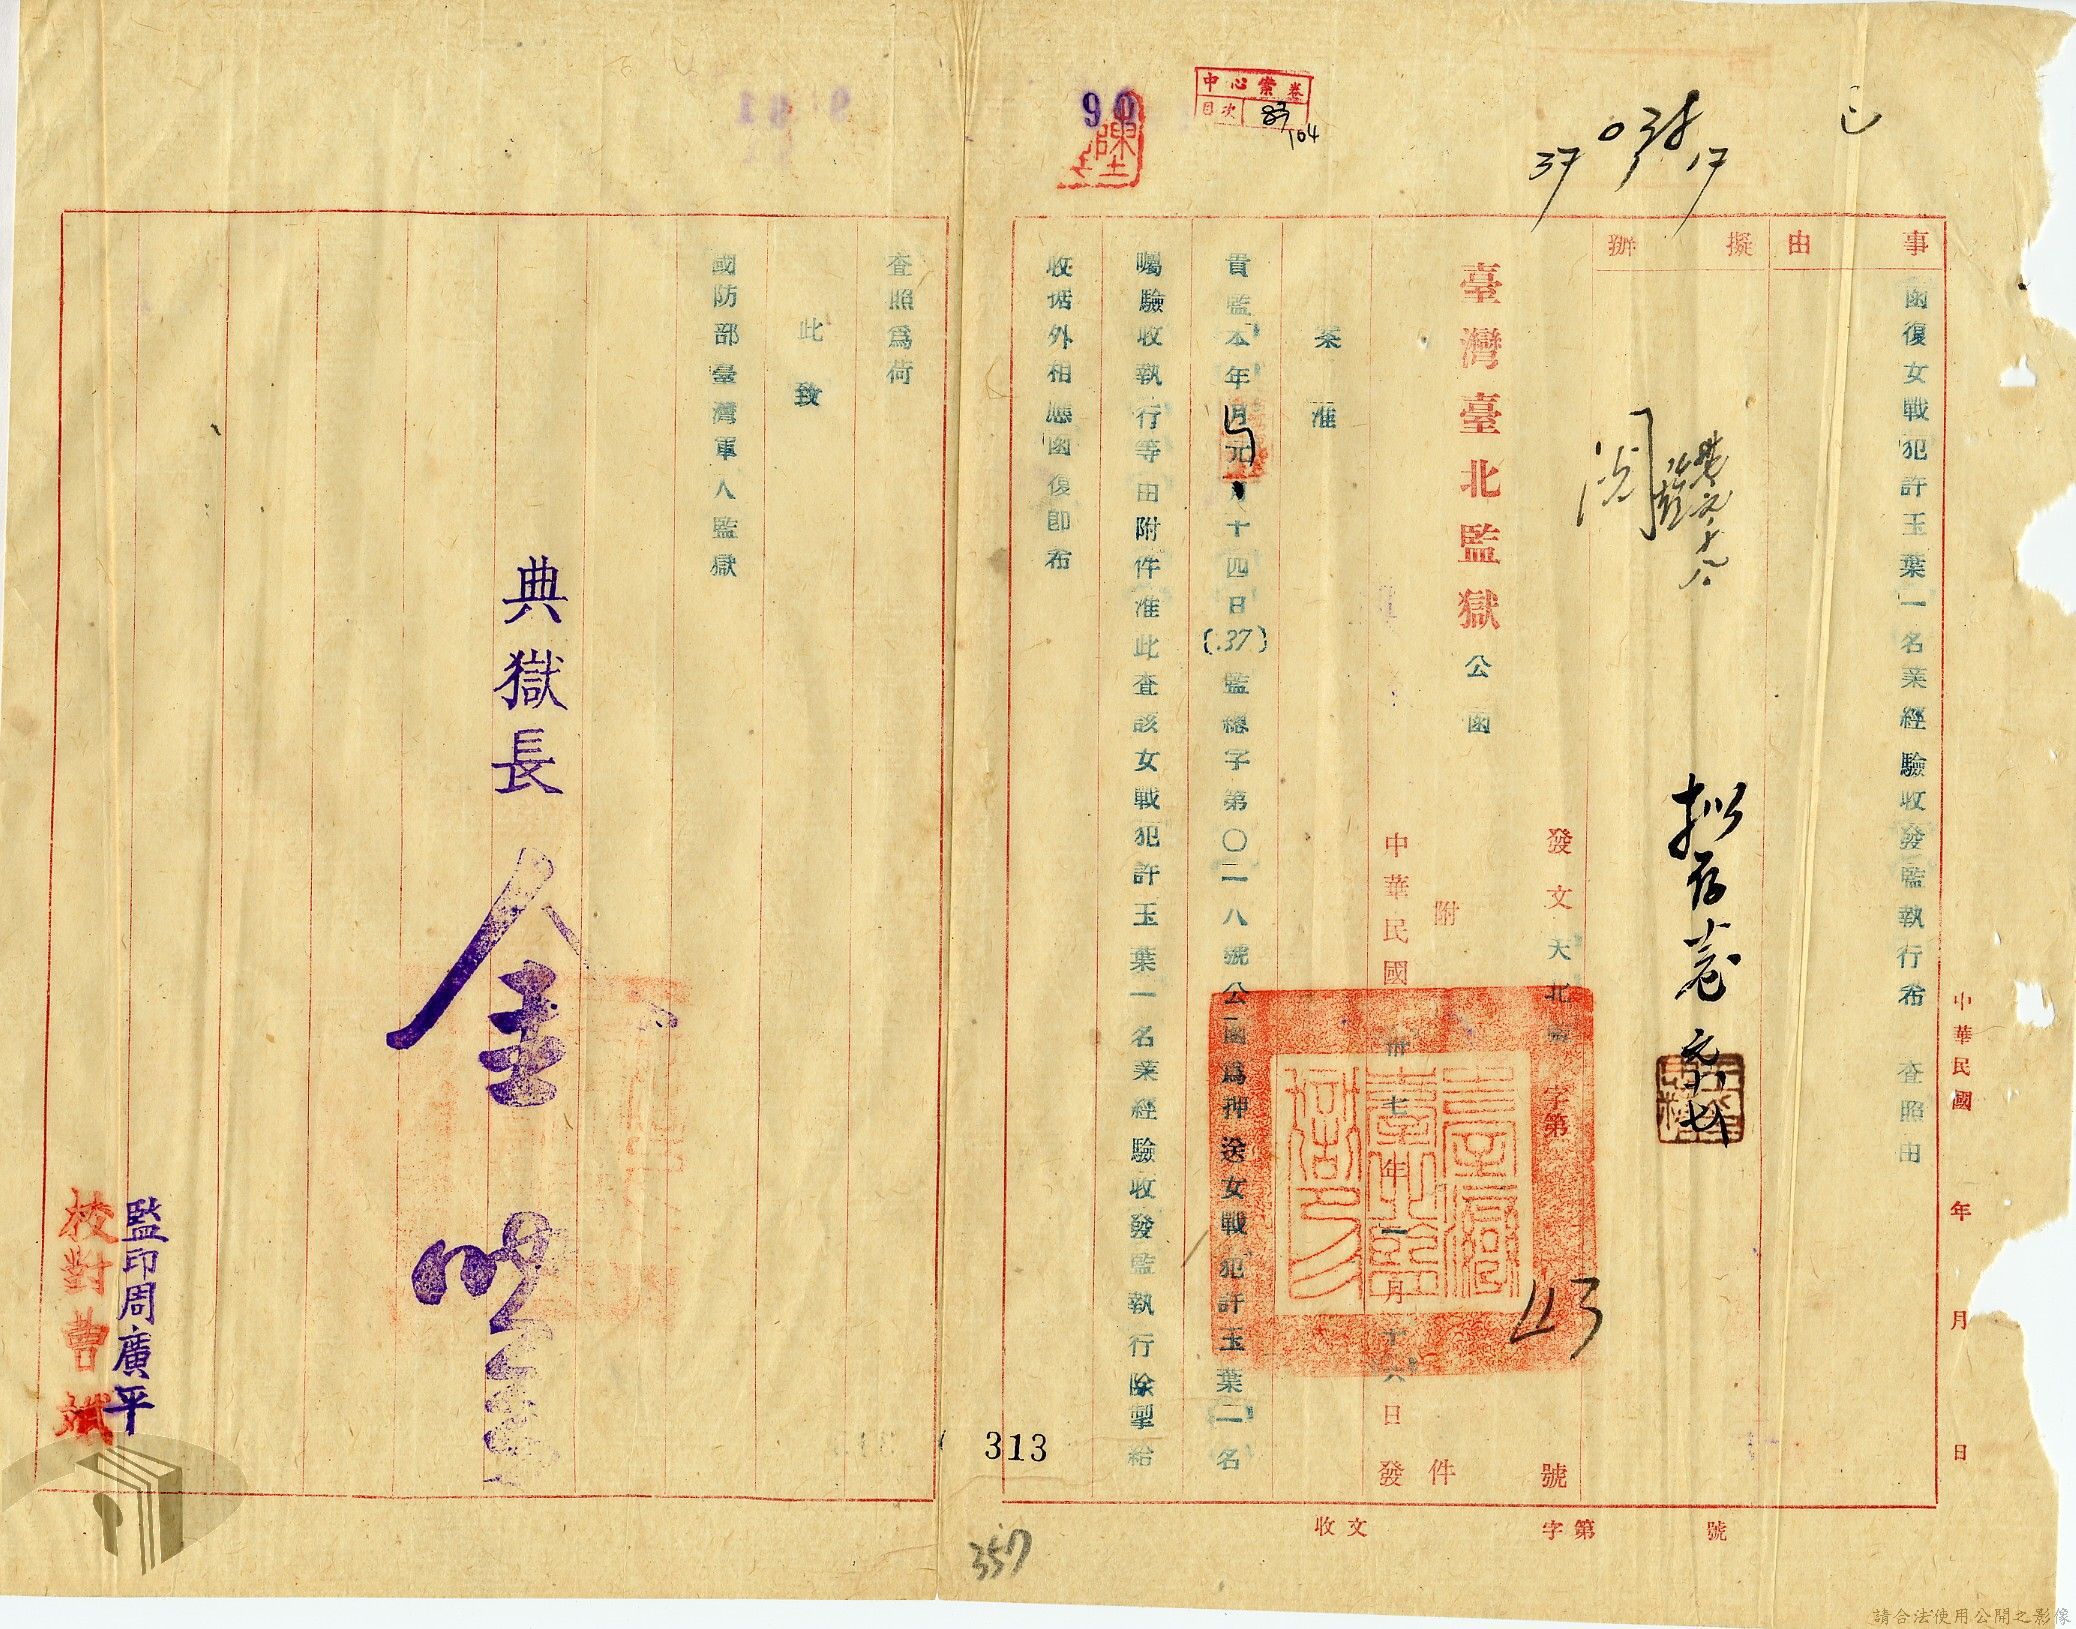 中心案卷
目次 83/104
90
038
37 1 17
事由
函復女戰犯許玉葉一名業經驗收發監執行希 查照由
擬辦
擬存卷 元十七
閱
臺灣臺北監獄公函
發文天北 字第 43 號
附 件
中華民國卅七年一月十六日發
案准
貴監本年元月十四日(37)監總字第〇二一八號公函爲押送女戰犯許玉葉一名
囑驗收執行等由附件准此查該女戰犯許玉葉一名業經驗收發監執行除掣給
收据外相應函復卽希
查照爲荷
此致
國防部臺灣軍人監獄
典獄長 金
監印周廣平
校對曹斌
中華民國 年 月 日
收文 字第 號
313
357
臺灣臺北監獄印
請合法使用公開之影像